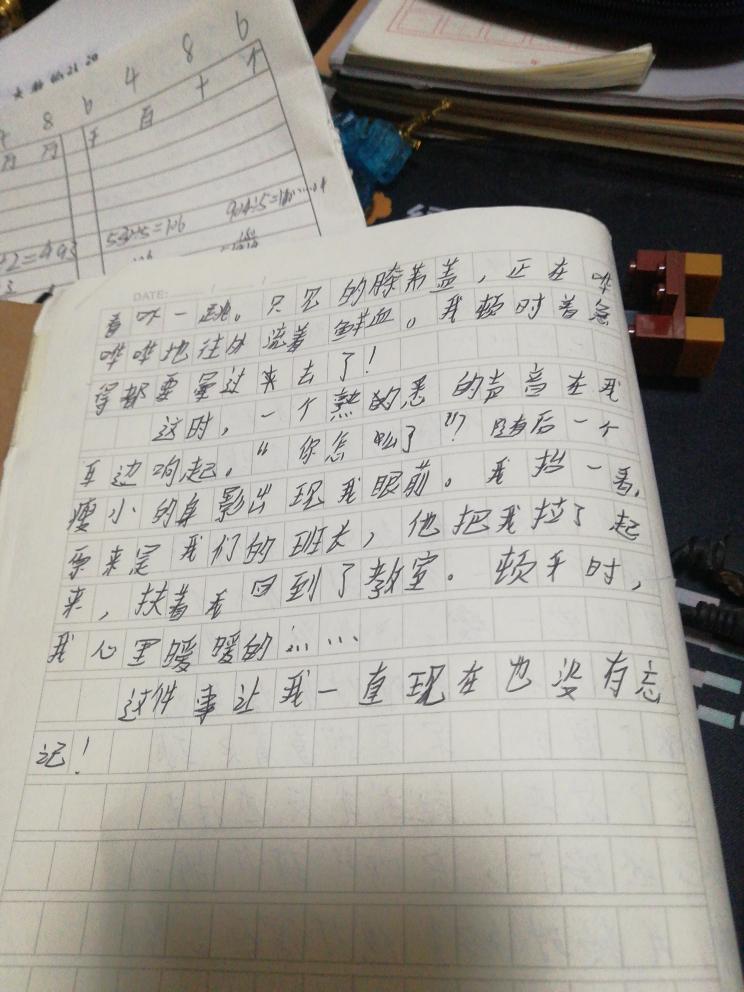 6 4 8 6
万 万 千 百 十 个
530÷5=106
DATE:
着吓一跳。只见的膝若盖，正在哗
哗哗地往外流着鲜血。我顿时着急
得都要晕过来去了！
这时，一个熟的悉的声音在我
耳边响起。“你怎么了”？随后一个
瘦小的身影出现我眼前。我抬一看，
原来是我们的班长，他把我拉了起
来，扶着我回到了教室。顿千时，
我心里暖暖的……
这件事让我一直现在也没有忘
记！